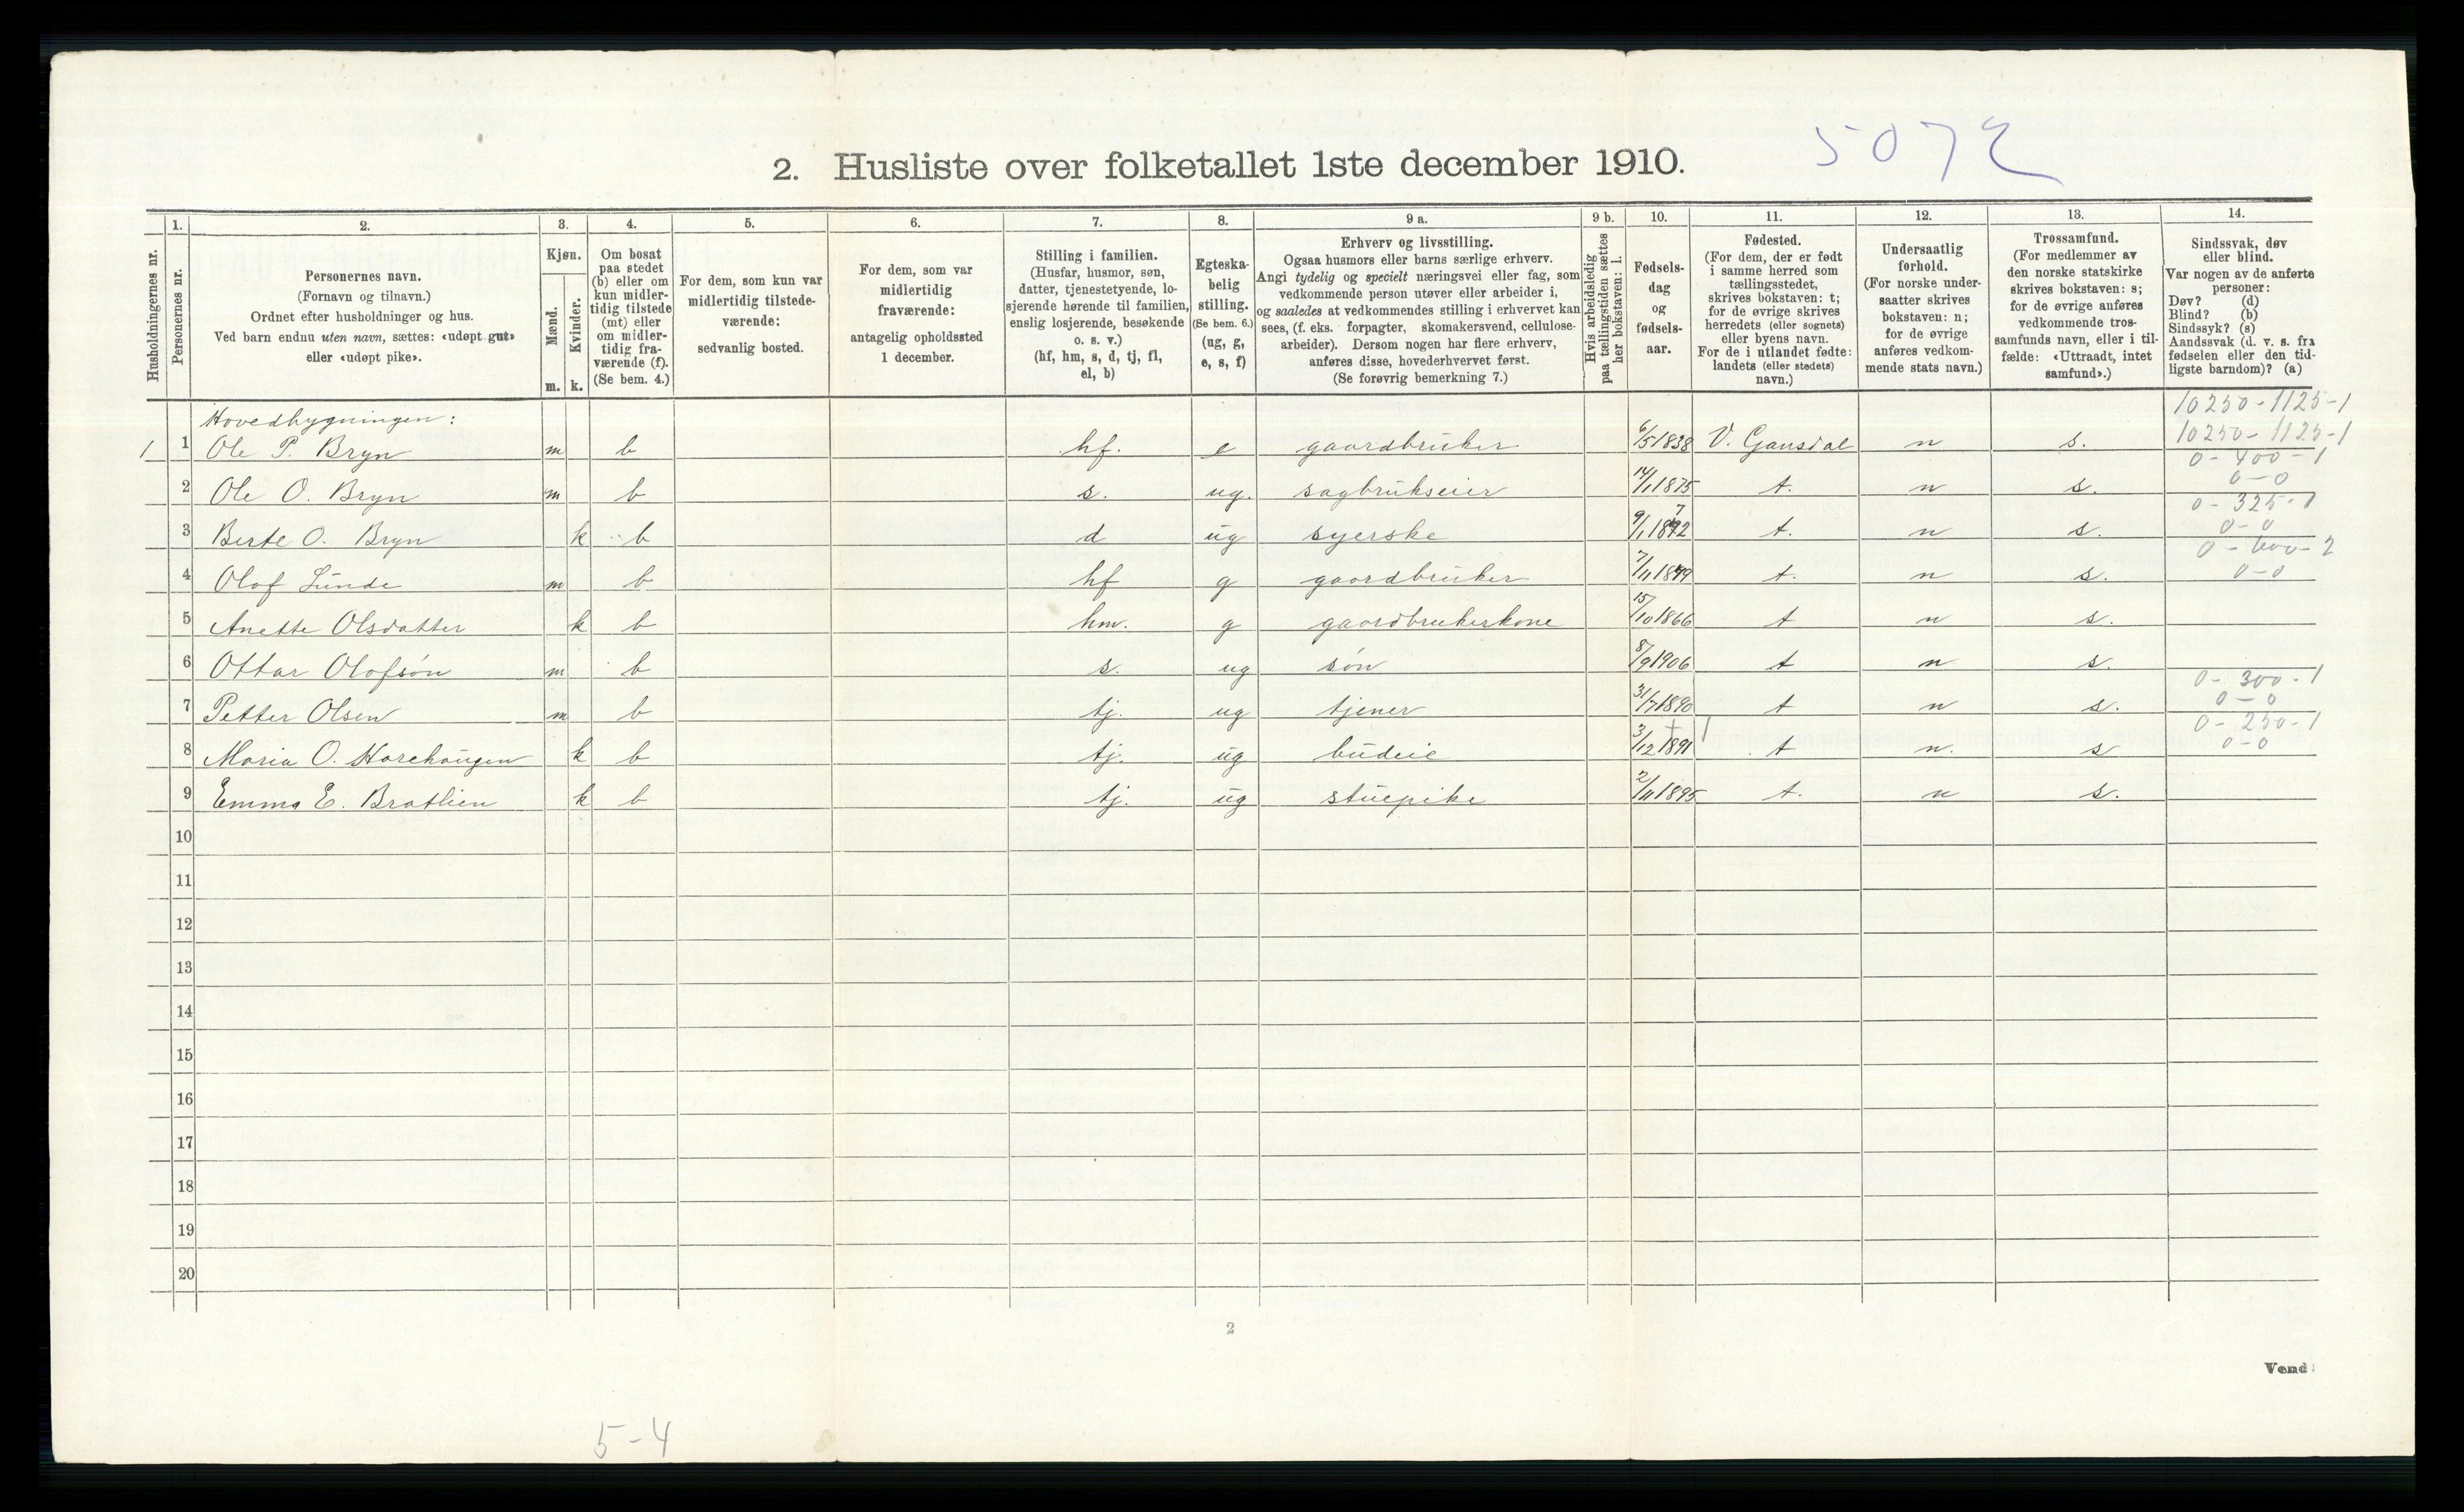 5072
2. Husliste over folketallet 1ste december 1910.
Husholdningernes nr.
1.
Personernes nr.
2.
Personernes navn.
(Fornavn og tilnavn.)
Ordnet efter husholdninger og hus.
Ved barn endnu uten navn, sættes: «udøpt gut»
eller «udøpt pike».
3.
Kjøn.
Mænd.
Kvinder.
m. k.
4.
Om bosat
paa stedet
(b) eller om
kun midler-
tidig tilstede
(mt) eller
om midler-
tidig fra-
værende (f).
(Se bem. 4.)
5.
For dem, som kun var
midlertidig tilstede-
værende:
sedvanlig bosted.
6.
For dem, som var
midlertidig
fraværende:
antagelig opholdssted
1 december.
7.
Stilling i familien.
(Husfar, husmor, søn,
datter, tjenestetyende, lo-
sjerende hørende til familien,
enslig losjerende, besøkende
o. s. v.)
(hf, hm, s, d, tj, fl,
el, b)
8.
Egteska-
belig
stilling.
(Se bem. 6.)
(ug, g,
e, s, f)
9 a.
Erhverv og livsstilling.
Ogsaa husmors eller barns særlige erhverv.
Angi tydelig og specielt næringsvei eller fag, som
vedkommende person utøver eller arbeider i,
og saaledes at vedkommendes stilling i erhvervet kan
sees, (f. eks. forpagter, skomakersvend, cellulose-
arbeider). Dersom nogen har flere erhverv,
anføres disse, hovederhvervet først.
(Se forøvrig bemerkning 7.)
9 b.
Hvis arbeidsledig
paa tællingstiden sættes
her bokstaven: l.
10.
Fødsels-
dag
og
fødsels-
aar.
11.
Fødested.
(For dem, der er født
i samme herred som
tællingsstedet,
skrives bokstaven: t;
for de øvrige skrives
herredets (eller sognets)
eller byens navn.
For de i utlandet fødte:
landets (eller stedets)
navn.)
12.
Undersaatlig
forhold.
(For norske under-
saatter skrives
bokstaven: n;
for de øvrige
anføres vedkom-
mende stats navn.)
13.
Trossamfund.
(For medlemmer av
den norske statskirke
skrives bokstaven: s;
for de øvrige anføres
vedkommende tros-
samfunds navn, eller i til-
fælde: «Uttraadt, intet
samfund».)
14.
Sindssvak, døv
eller blind.
Var nogen av de anførte
personer:
Døv? (d)
Blind? (b)
Sindssyk? (s)
Aandssvak (d. v. s. fra
fødselen eller den tid-
ligste barndom)? (a)
Hovedbygningen: 10250-1125-1
1 1 Ole P. Bryn m b hf. e gaardbruker 6/5 1838 V. Gausdal n s. 10250-1125-1
0-400-1
2 Ole O. Bryn m b s. ug. sagbrukseier 14/1 1875 t. n s. 0-0
0-325-1
3 Berte O. Bryn k b d ug syerske 9/1 1872 t. n s. 0-0
0-600-2
4 Olof Lunde m b hf g gaardbruker 7/11 1879 t. n s. 0-0
5 Anette Olsdatter k b hm. g gaardbrukerkone 15/10 1866 t n s.
6 Ottar Olofsøn m b s. ug søn 8/9 1906 t n s.
0-300-1
7 Petter Olsen m b tj. ug tjener 31/7 1890 t n s. 0-0
0-250-1
8 Maria O. Harehaugen k b tj. ug budeie 3/12 1891 t n. s 0-0
9 Emma E. Bratlien k b tj. ug stuepike 2/11 1895 t. n s.
10
11
12
13
14
15
16
17
18
19
20
2
Vend
5-4